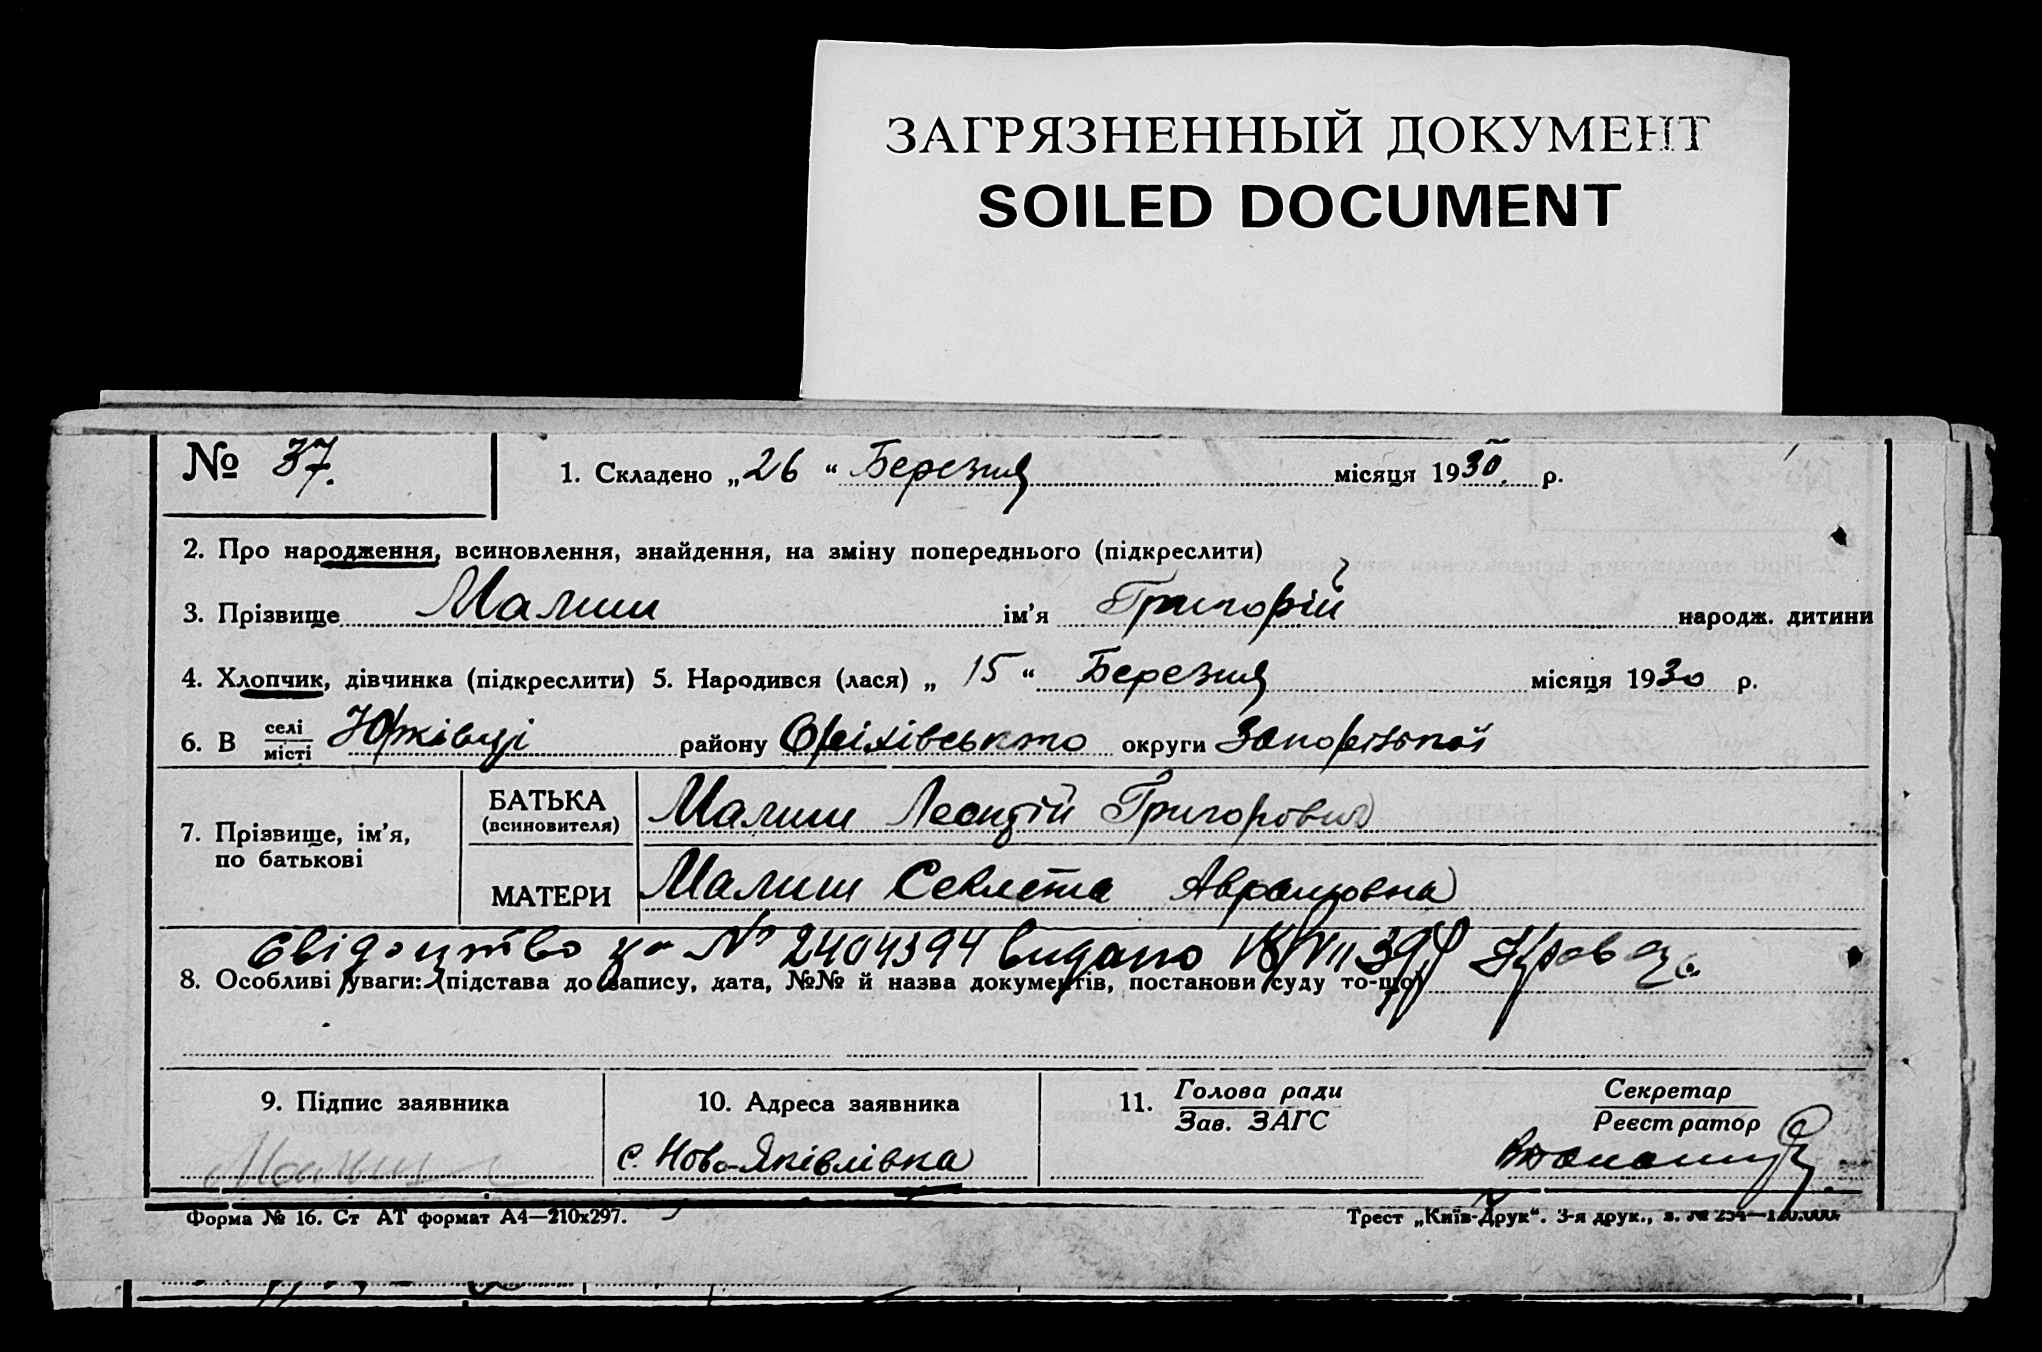 ЗАГРЯЗНЕННЫЙ ДОКУМЕНТ
SOILED DOCUMENT
№ 37.
1. Складено „26“ Березня місяця 1930. р.
2. Про народження, всиновлення, знайдення, на зміну попереднього (підкреслити)
3. Прізвище Малиш ім’я Григорій народж. дитини
4. Хлопчик, дівчинка (підкреслити) 5. Народився (лася) „15“ Березня місяця 1930 р.
6. В селі/місті Юрківці району Оріхівського округи Запорізької
7. Прізвище, ім’я, по батькові
БАТЬКА (всиновителя) Малиш Леонтій Григорович
МАТЕРИ Малиш Секлета Аврамовна
Свідоцтво № 2404394 видано
8. Особливі уваги: (підстава до запису, дата, №№ й назва документів, постанови суду то-що)
9. Підпис заявника
10. Адреса заявника
11. Голова ради / Зав. ЗАГС
Секретар / Реєстратор
Малиш
с. Ново-Яківлівка
Форма № 16. Ст АТ формат А4—210х297.
Трест „Київ-Друк“. 3-я друк., з. № 254—120.000.